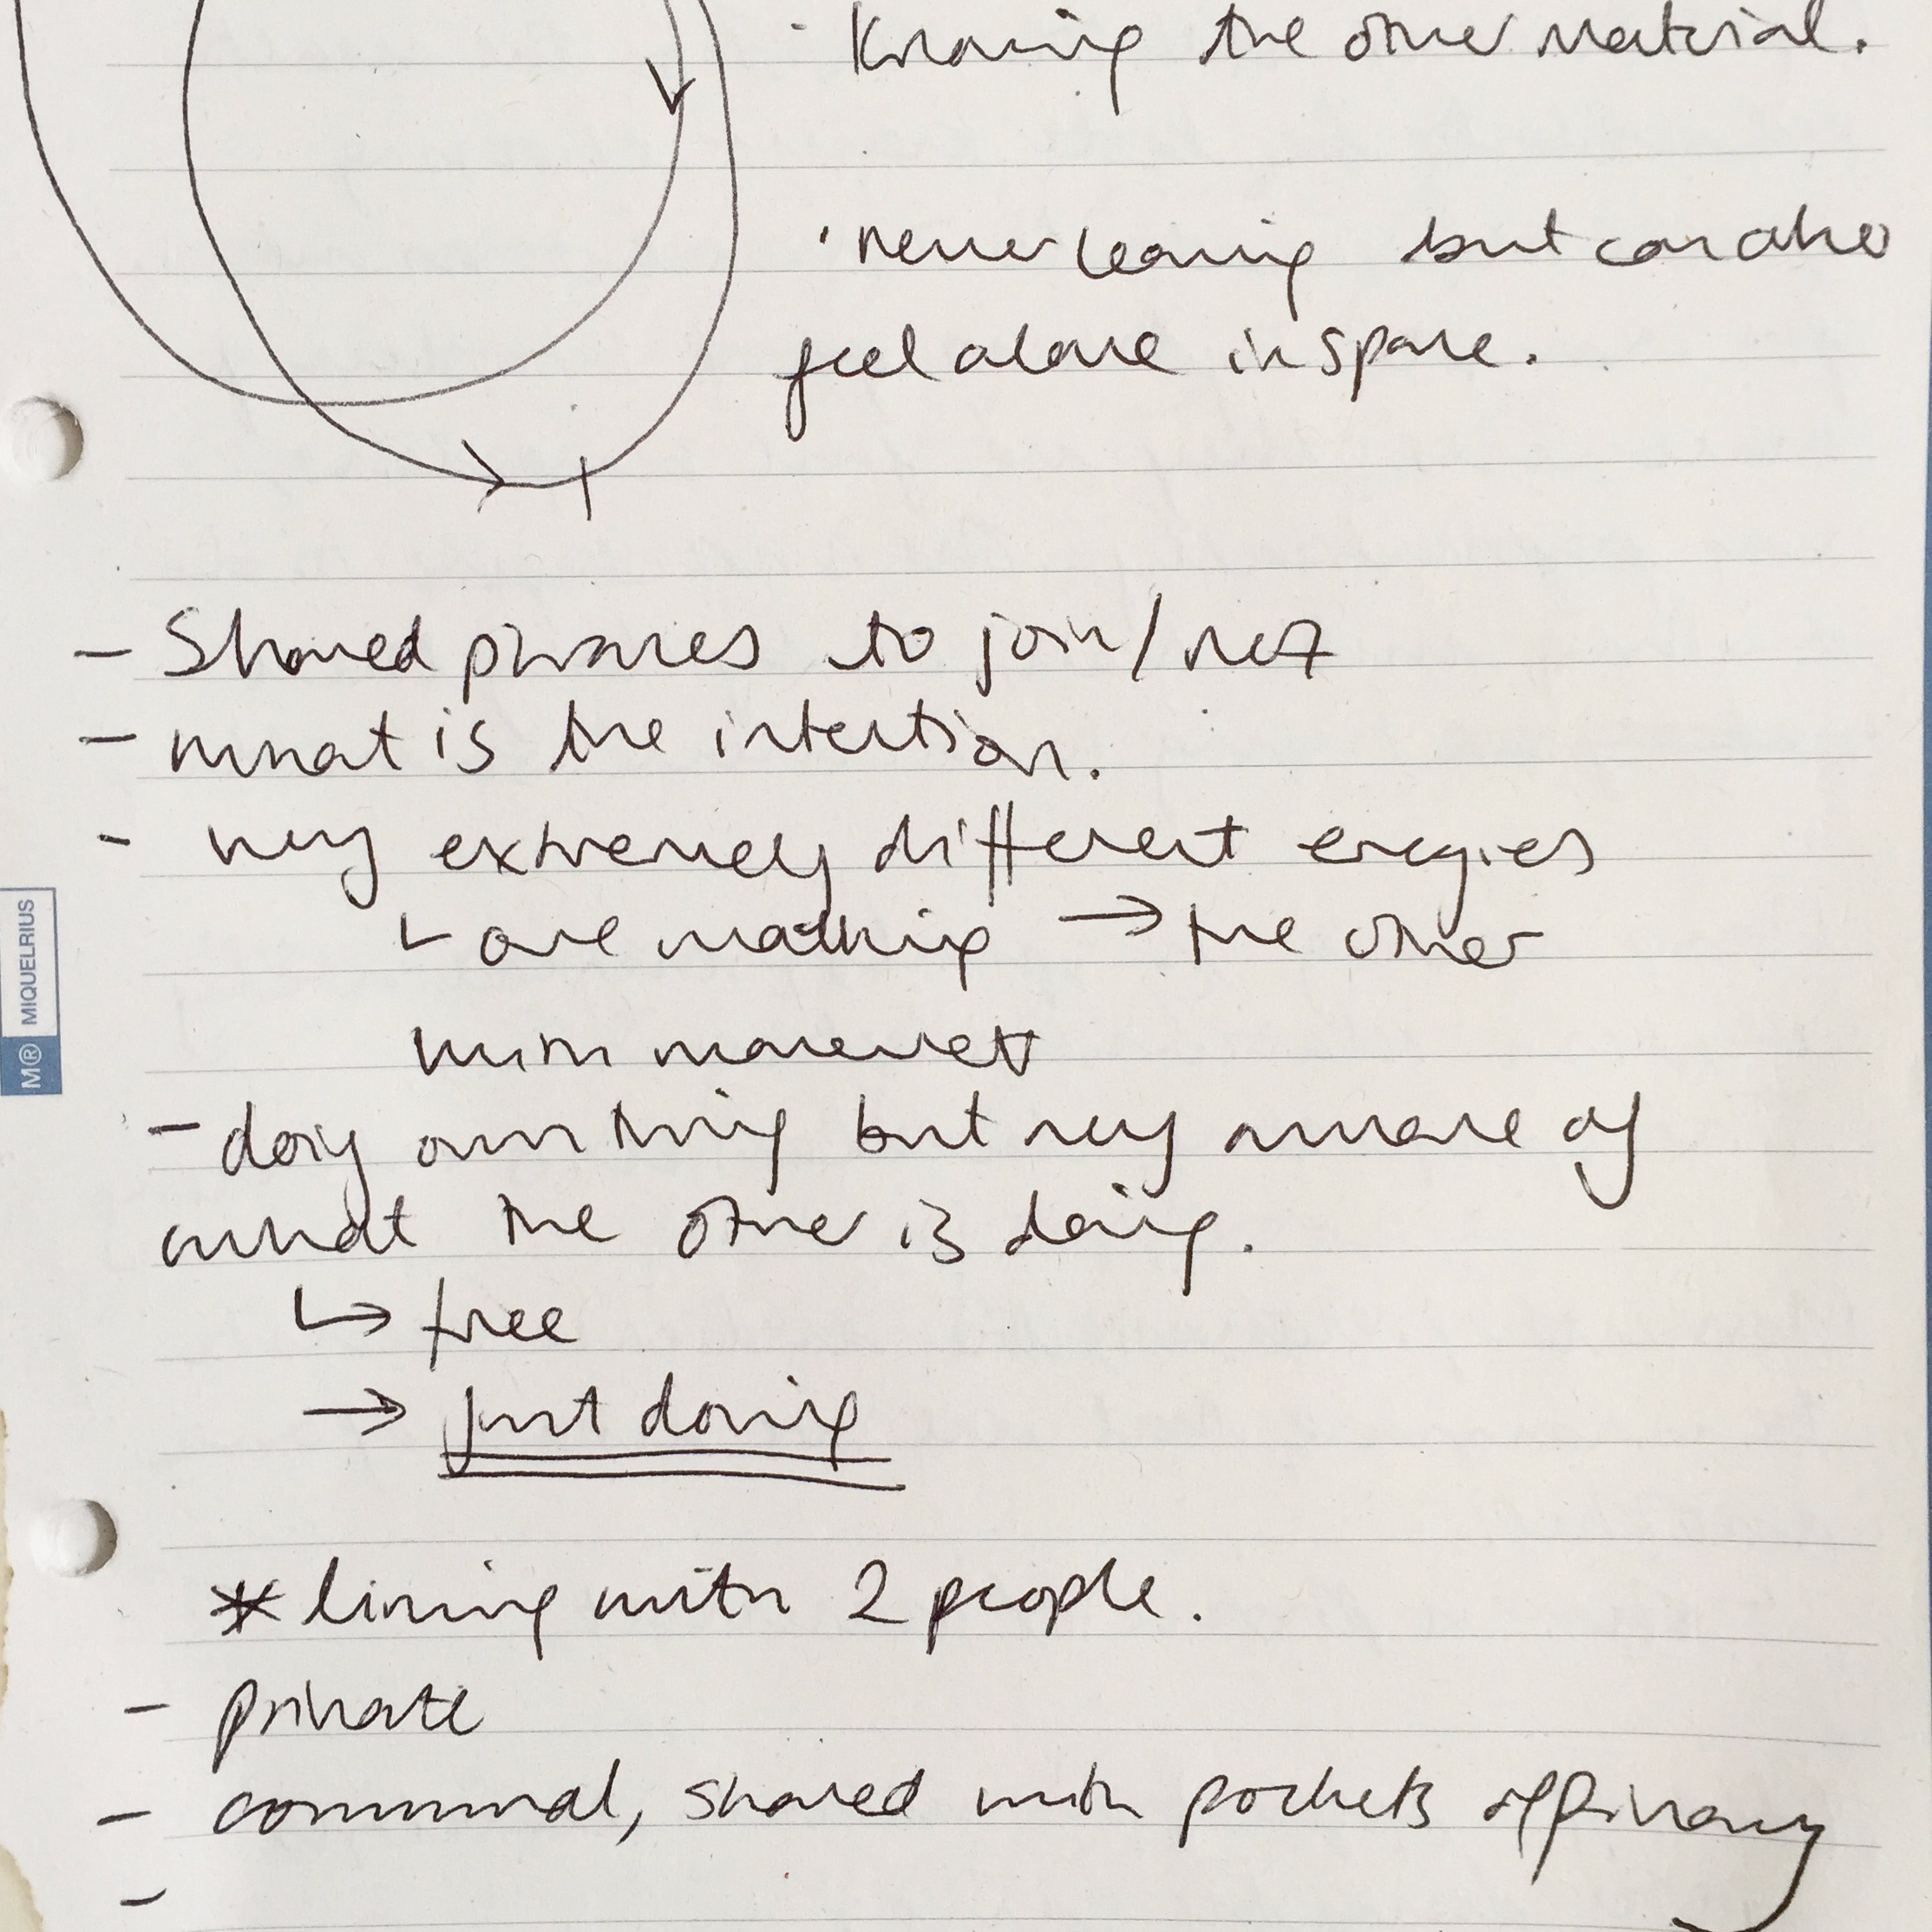 · Knowing the other material.
· never leaving but can also
feel alone in space.
- Shared phrases to join/not
- what is the intention.
- very extremely different energies
↳ one walking → the other
with movement
- doing own thing but very aware of
what the other is doing.
↳ free
→ just doing
* living with 2 people.
- private
- communal, shared with pockets of privacy
-
M® MIQUELRIUS